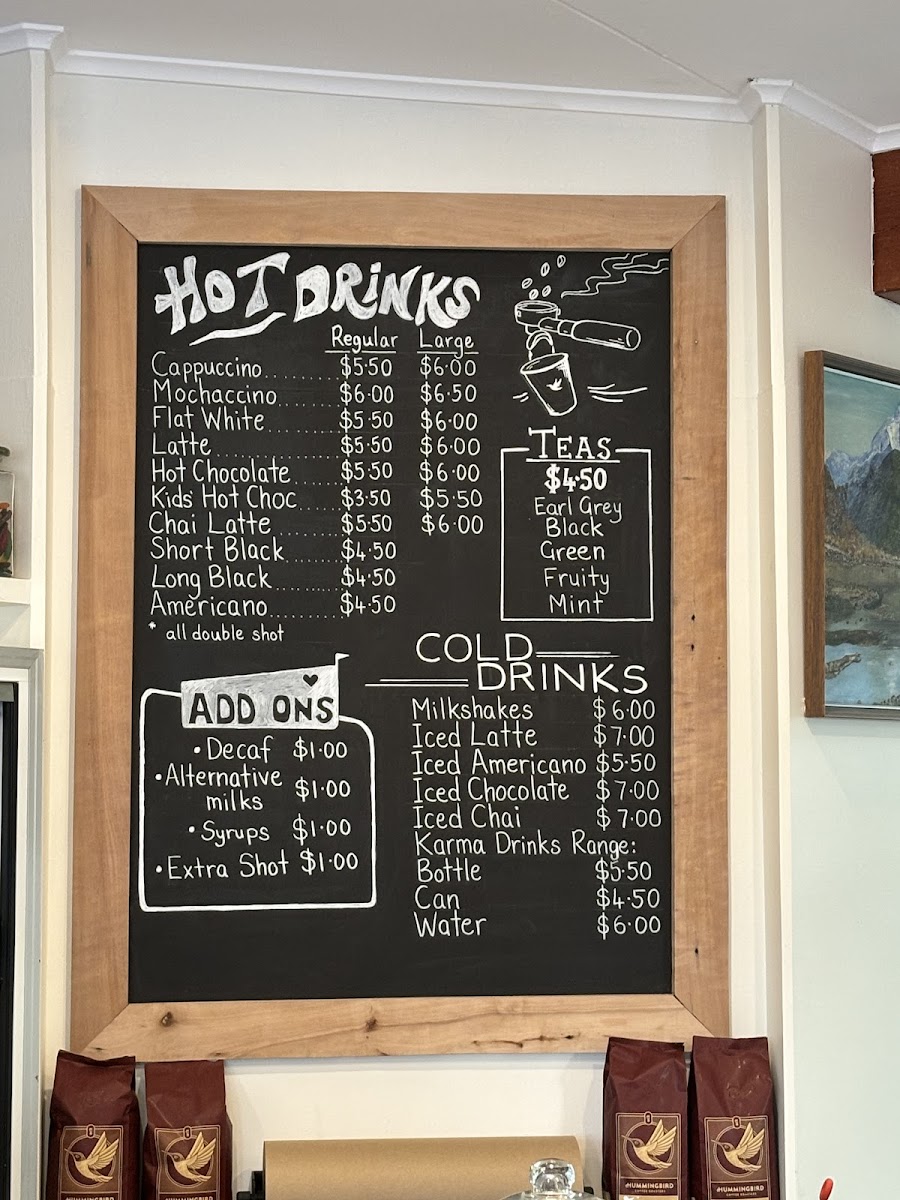 HOT DRINKS
Regular Large
Cappuccino $5.50 $6.00
Mochaccino $6.00 $6.50
Flat White $5.50 $6.00
Latte $5.50 $6.00
Hot Chocolate $5.50 $6.00
Kids' Hot Choc $3.50 $5.50
Chai Latte $5.50 $6.00
Short Black $4.50
Long Black $4.50
Americano $4.50
* all double shot
TEAS
$4.50
Earl Grey
Black
Green
Fruity
Mint
ADD ONS
• Decaf $1.00
• Alternative
milks $1.00
• Syrups $1.00
• Extra Shot $1.00
COLD
DRINKS
Milkshakes $6.00
Iced Latte $7.00
Iced Americano $5.50
Iced Chocolate $7.00
Iced Chai $7.00
Karma Drinks Range:
Bottle $5.50
Can $4.50
Water $6.00
HUMMINGBIRD
HUMMINGBIRD
HUMMINGBIRD
COFFEE ROASTERS
HUMMINGBIRD
COFFEE ROASTERS